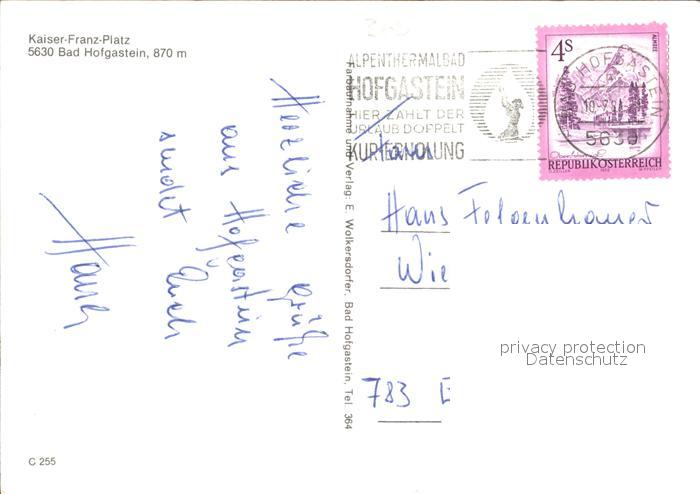 Kaiser-Franz-Platz
5630 Bad Hofgastein, 870 m
Herzliche Grüße
aus Hofgastein
sendet Euch
C 255
Farbaufnahme und Verlag: E. Wolkersdorfer, Bad Hofgastein, Tel. 364
ALPENTHERMALBAD
HOFGASTEIN
HIER ZÄHLT DER
URLAUB DOPPELT
KURERHOLUNG
HOFGASTEIN
5630
4S
ALMSEE
REPUBLIK ÖSTERREICH
Hans
Wie
783 E
privacy protection
Datenschutz